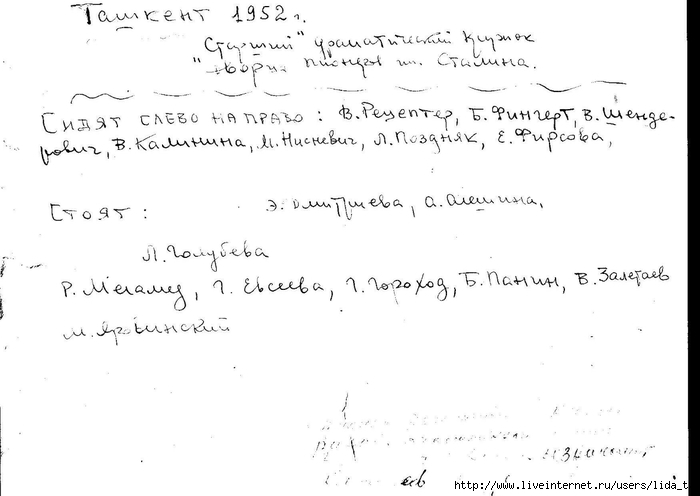 Ташкент 1952 г.
"Старший" драматический кружок
пионеров им. Сталина.
СИДЯТ СЛЕВО НА ПРАВО: В. Рецептер, Б. Фингерт, В. Шенде-
рович, В. Калинина, М. Нисневич, Л. Поздняк, Е. Фирсова,
СТОЯТ: Э. Дмитриева, А. Алешина,
Л. Голубева
Р. Меламед, Г. Евсеева, Г. Гороход, Б. Панин, В. Залетаев
М. Ярвинский
http://www.liveinternet.ru/users/lida_t